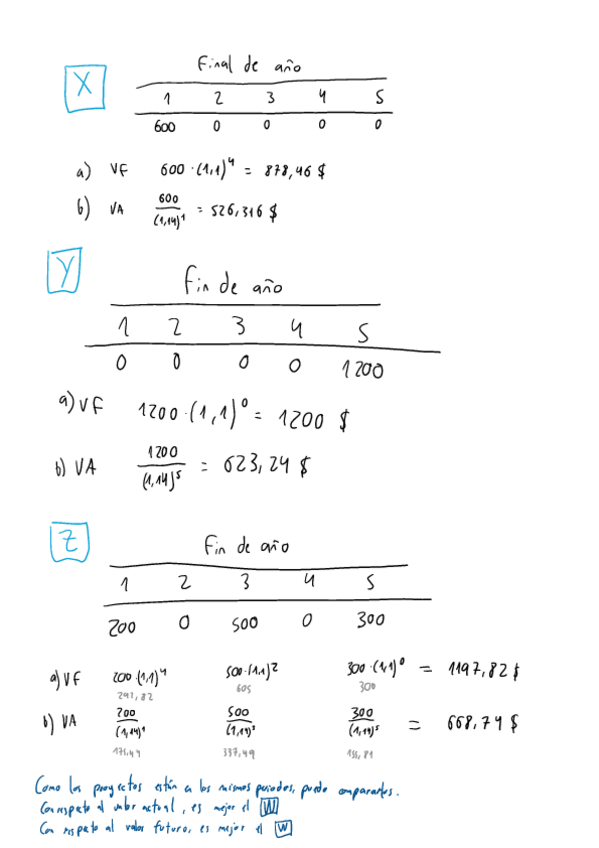 X
Final de año
1 2 3 4 5
600 0 0 0 0
a) VF 600 · (1,1)^4 = 878,46 $
b) VA 600/(1,14)^1 = 526,316 $
Y
Fin de año
1 2 3 4 5
0 0 0 0 1200
a) VF 1200 · (1,1)^0 = 1200 $
b) VA 1200/(1,14)^5 = 623,24 $
Z
Fin de año
1 2 3 4 5
200 0 500 0 300
a) VF 200 · (1,1)^4 500 · (1,1)^2 300 · (1,1)^0 = 1197,82 $
292,82 605 300
b) VA 200/(1,14)^1 500/(1,14)^3 300/(1,14)^5 = 668,74 $
175,44 337,49 155,81
Como los proyectos están a los mismos periodos, puedo compararlos.
Con respeto al valor actual, es mejor el W
Con respeto al valor futuro, es mejor el W